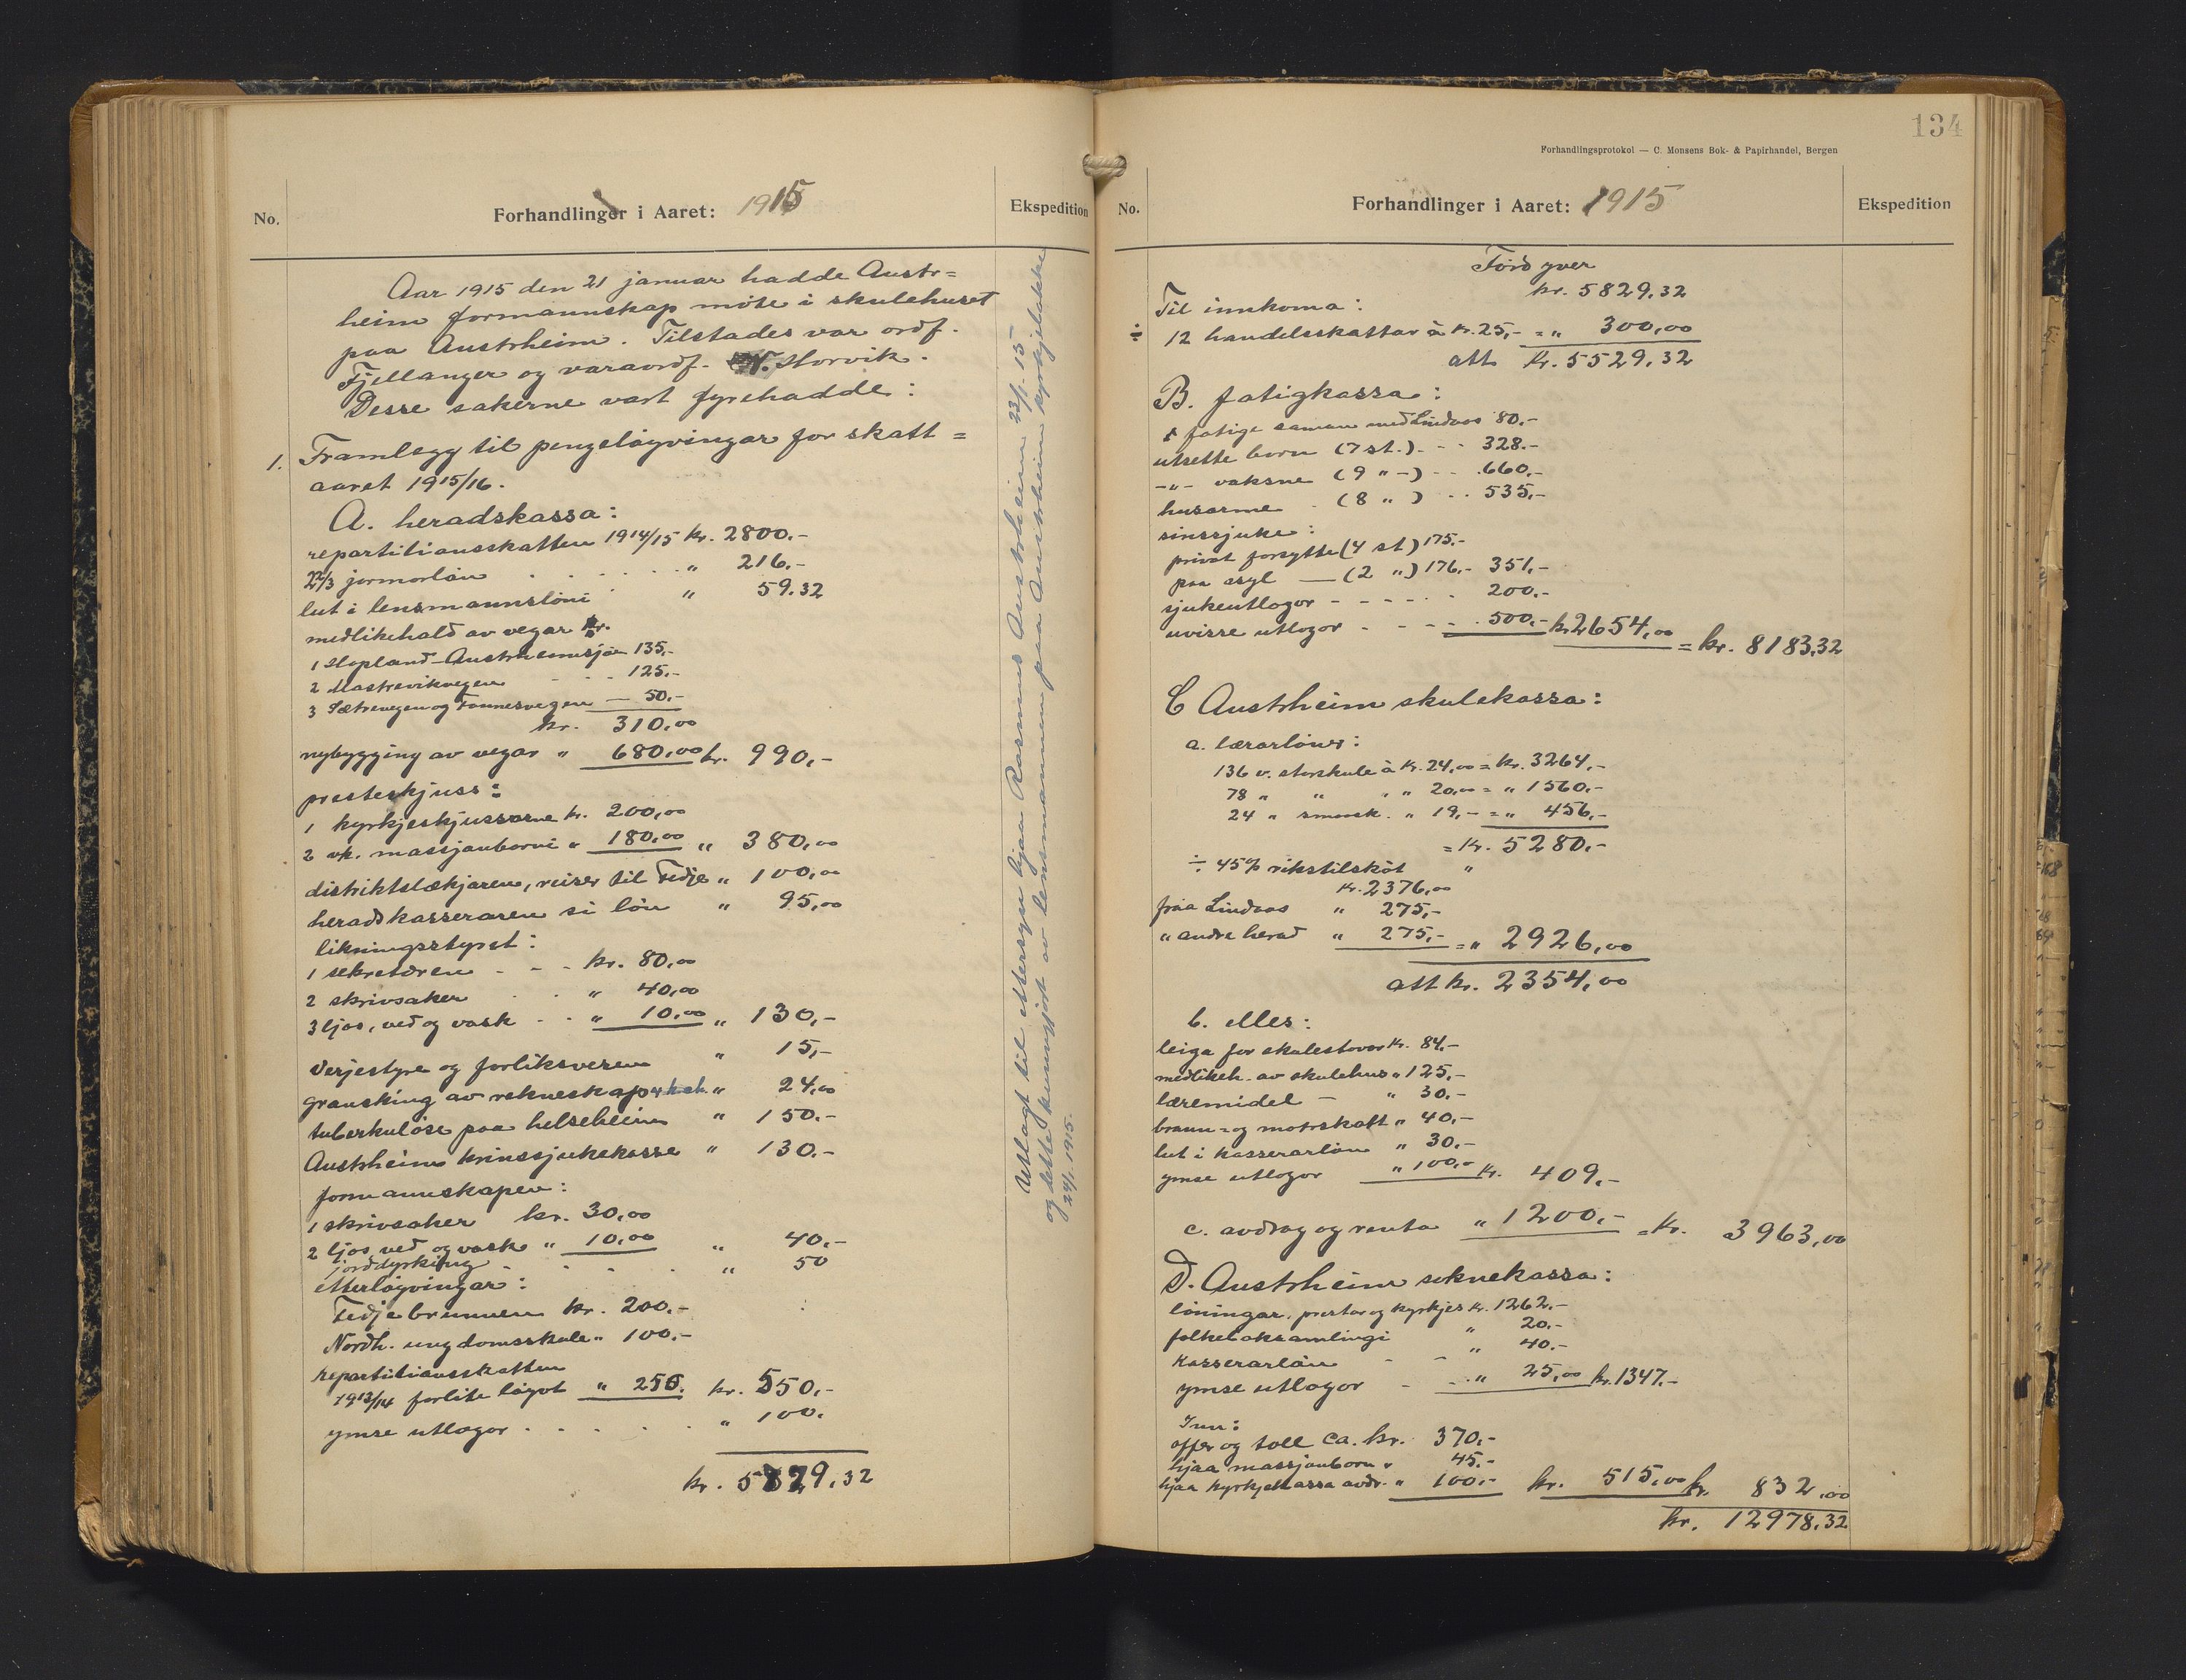 No.
Forhandlinger i Aaret: 1915
Ekspedition
Aar 1915 den 21 januar hadde Austr=
heim formannskap møte i skulehuset
paa Austrheim. Tilstades var ordf.
Fjellanger og varaordf. N. Horvik.
Desse sakerne vart fyrehadde:
1. Framlegg til pengeløyvingar for skatt=
aaret 1915/16.
A. heradskassa:
repartitionsskatten 1914/15 kr. 2800.-
22/3 jormorløn . . . . . " 216.-
lut i lensmannsløni " 59.32
medlikehald av vegar kr.
1 Hopland-Austrheimsjøen 135,-
2 Mastrevikvegen - - . 125.-
3 Sætrevegen og Fonnesvegen — 50.-
kr. 310,00
nybygging av vegar " 680,00 kr. 990,-
presteskjuss:
1 kyrkjeskjussarne kr. 200,00
2 vk. massjonborni " 180,00 " 380,00
distriktslækjaren, reiser til Fedje " 100,00
heradskasseraren si løn " 95,00
likningsstyret:
1 sekretæren - - - kr. 80,00
2 skrivsaker . . " 40,00
3 ljos, ved og vask . . " 10,00 " 130,-
Verjestyre og forliksveren " 15,-
Gransking av rekneskap " 24,00
tuberkuløse paa helseheim " 150.-
Austrheim krinssjukekasse " 130.-
formannskapen:
1 skrivsaker kr. 30,00
2 ljos, ved og vask " 10,00 " 40.-
jorddyrking - . . . . " 50
etterløyvingar:
Fedjebrunnen kr. 200.-
Nordh. ungdomsskule " 100.-
repartitionsskatten
1913/14 forlite løyvt " 250. kr. 550,-
ymse utlogor . . . . . " 100.
kr. 5829,32
Utlagt til ettersyn hjaa Rasmus Austrheim 23/1-15
og dette kunngjort av lensmannen paa Austrheim kyrkjebakke
24/1-1915.
134
Forhandlingsprotokol — C. Monsens Bok- & Papirhandel, Bergen
No.
Forhandlinger i Aaret: 1915
Ekspedition
Førd yver
kr. 5829,32
Til innkoma:
÷ 12 handelsskattar à kr. 25,- = " 300,00
att kr. 5529,32
B. fatigkassa:
fatige saman med Lindaas 80.-
utsette born (7 st.) - - 328.-
-"- vaksne (9 "-) - - .660,-
husarme . (8 ") . . 535,-
sinssjuke:
privat forsytte (4 st) 175.-
paa asyl — (2 ") 176,- 351,-
sjukeutlogor - - - - . - 200.-
uvisse utlogor - - - - . 500,- kr 2654,00 = kr. 8183,32
C Austrheim skulekassa:
a. lærarløner:
136 v. storskule à kr. 24,00 = kr. 3264,-
78 " " " " 20,00 = " 1560.-
24 " smaask. " 19,- = " 456,-
= kr. 5280.-
÷ 45% rikstilskot "
kr. 2376,00
fraa Lindaas " 275,-
" andre herad " 275,- = " 2926,00
att kr. 2354,00
b. elles:
leiga for skulestovor kr. 84.-
medlikeh. av skulehus " 125,-
læremidel — " 30.-
brann- og motorskatt " 40,-
lut i kasserarløn " 30.-
ymse utlogor " 100,- kr. 409,-
c. avdrag og renta " 1200,- = kr. 3963,00
D. Austrheim soknekassa:
løningar, prestar og kyrkjes kr. 1262.-
folkeboksamlingi " 20.-
kasserarløn - - " 40.-
ymse utlogor - - . " 25,00 kr. 1347.-
Inn:
offer og toll ca. kr. 370,-
hjaa massjonborn " 45.-
hjaa kyrkjekassa avdr. " 100.- kr. 515,00 kr. 832,00
kr. 12978,32